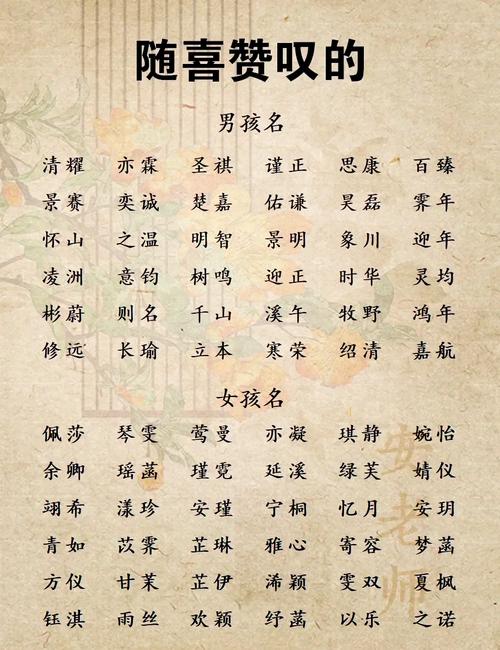 随喜赞叹的
男孩名
清耀 亦霖 圣祺 谨正 思康 百臻
景赛 奕诚 楚嘉 佑谦 昊磊 霁年
怀山 之温 明智 景明 象川 迎年
凌洲 意钧 树鸣 迎正 时华 灵均
彬蔚 则名 千山 溪午 牧野 鸿年
修远 长瑜 立本 寒荣 绍清 嘉航
女孩名
佩莎 琴雯 莺曼 亦凝 琪静 婉怡
余卿 瑶菡 瑾霓 延溪 绿芙 婧仪
翊希 漾珍 安瑾 宁桐 忆月 安玥
青如 苡霁 芷琳 雅心 寄容 梦菡
方仪 甘茉 芷伊 浠颖 雯双 夏枫
钰淇 雨丝 欢颖 纾菡 以乐 之诺
安老师